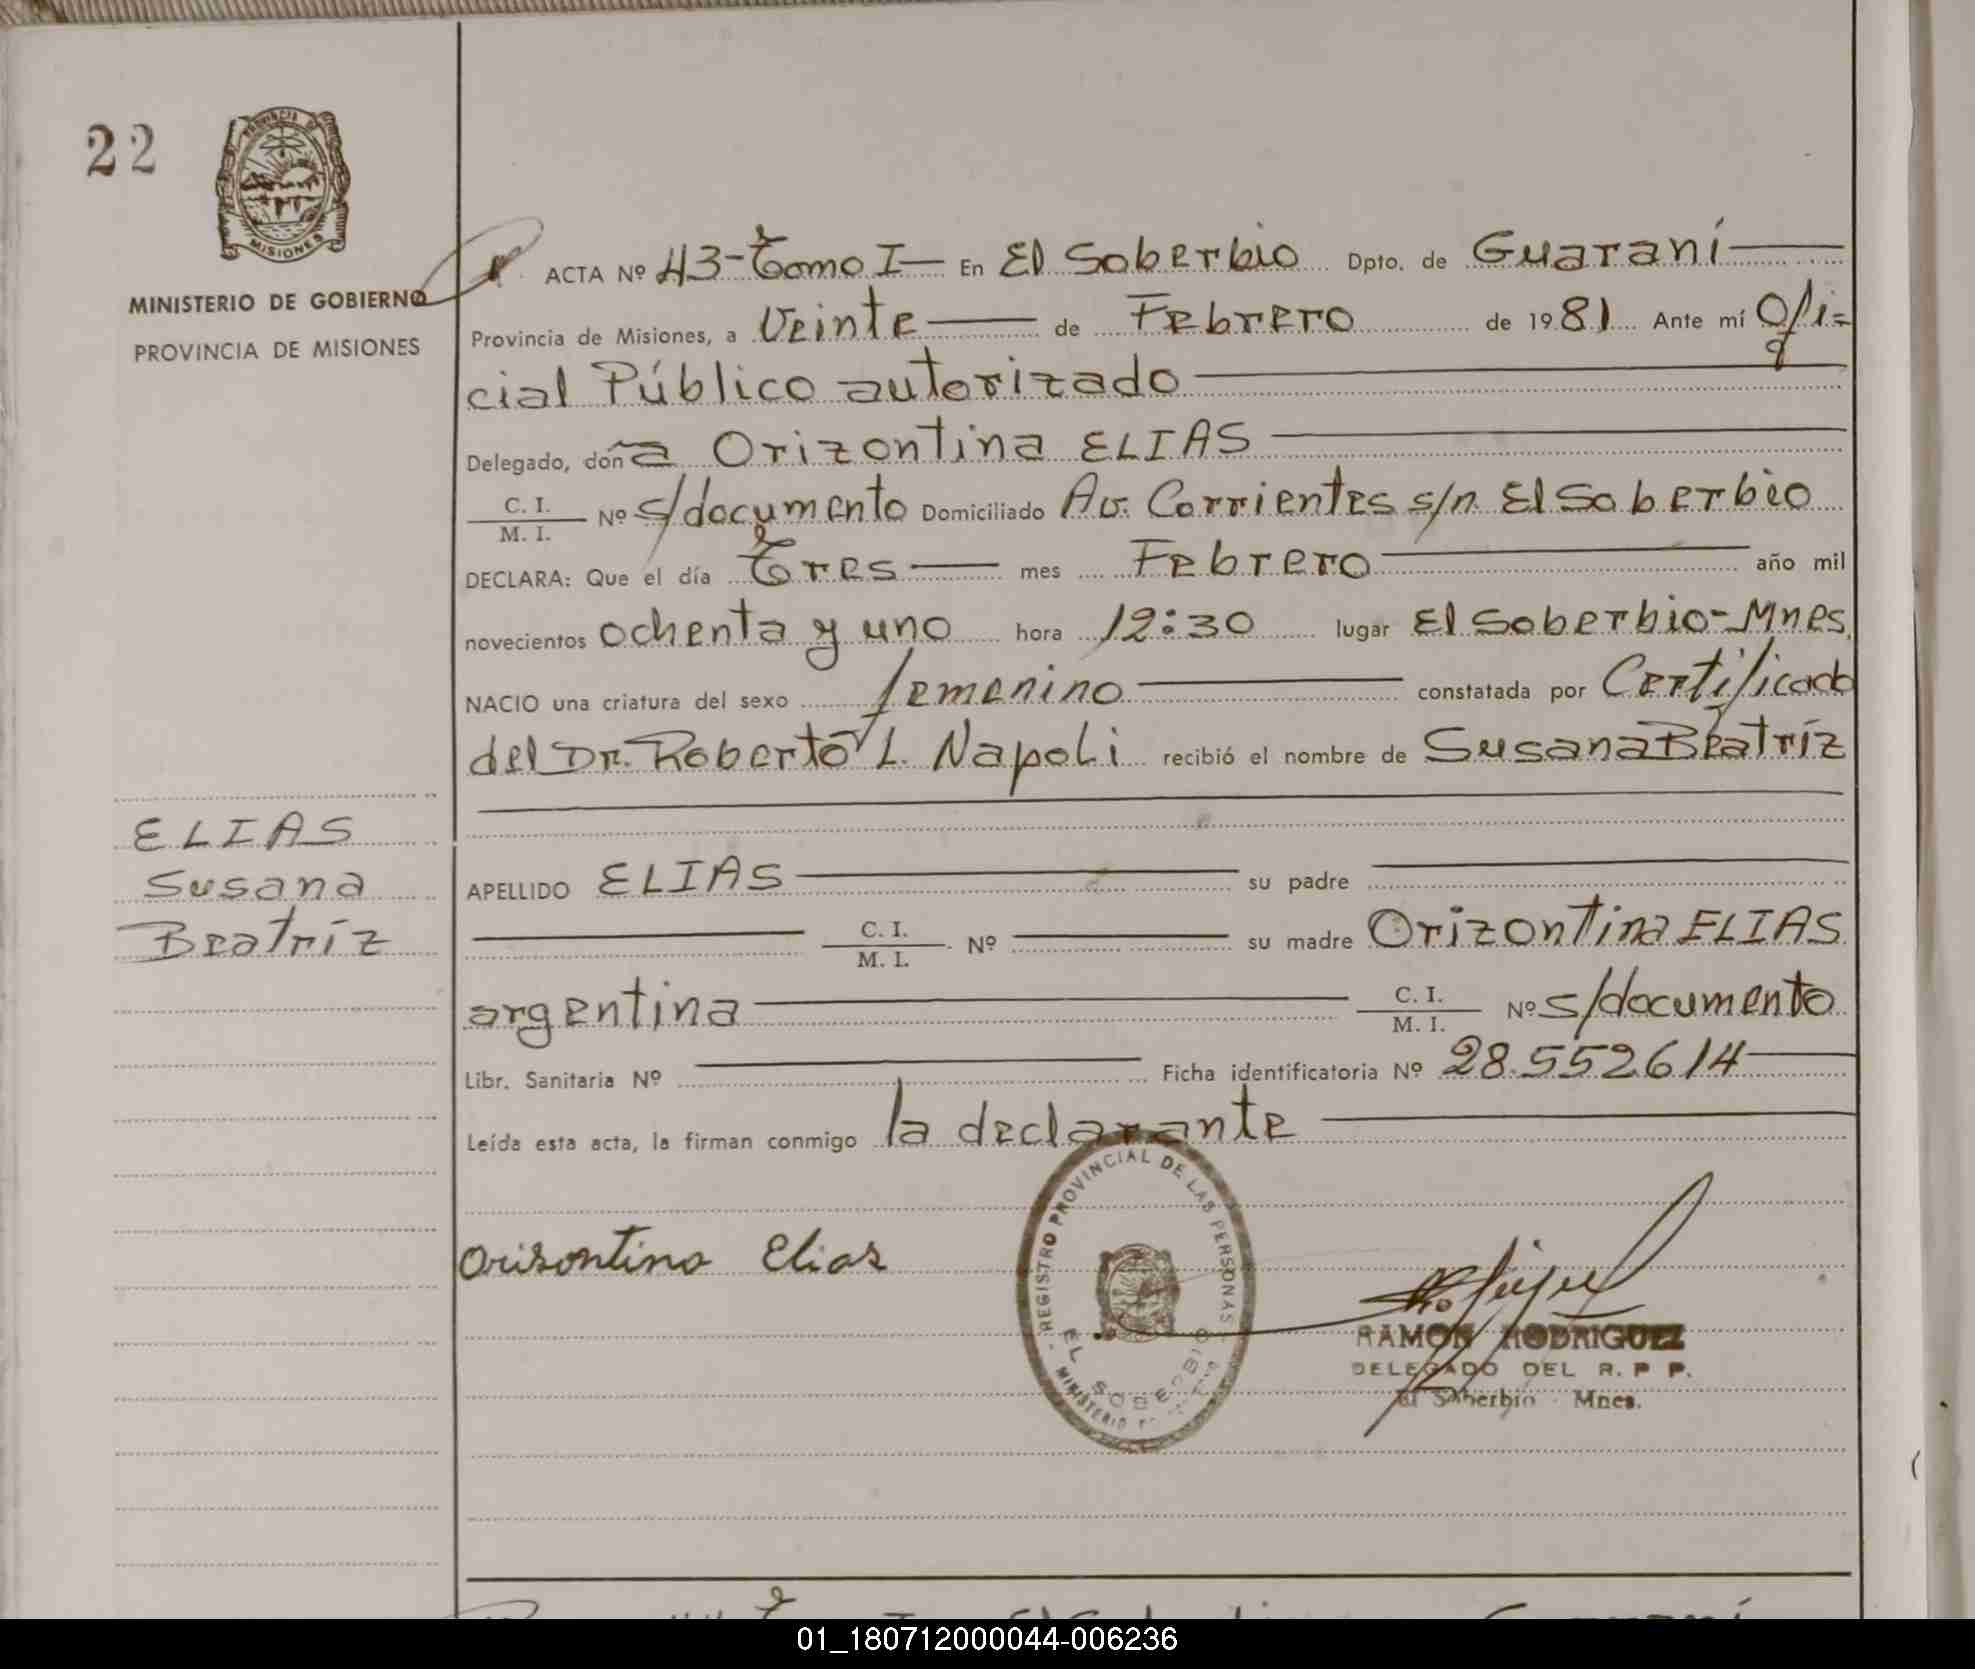 22
PROVINCIA DE
MISIONES
MINISTERIO DE GOBIERNO
PROVINCIA DE MISIONES
ACTA Nº 43-Tomo I- En El Soberbio Dpto. de Guaraní
Provincia de Misiones, a Veinte de Febrero de 1981 Ante mí Ofi=
cial Público autorizado
Delegado, doña Orizontina ELIAS
C. I.
M. I. Nº s/documento Domiciliado Av. Corrientes s/n. El Soberbio
DECLARA: Que el día Tres mes Febrero año mil
novecientos ochenta y uno hora 12:30 lugar El Soberbio-Mnes.
NACIO una criatura del sexo femenino constatada por Certificado
del Dr. Roberto L. Napoli recibió el nombre de Susana Beatríz
ELIAS
Susana
Beatríz
APELLIDO ELIAS su padre
C. I.
M. I. Nº su madre Orizontina ELIAS
argentina C. I.
M. I. Nº s/documento
Libr. Sanitaria Nº Ficha identificatoria Nº 28.552.614
Leída esta acta, la firman conmigo la declarante
REGISTRO PROVINCIAL DE LAS PERSONAS
EL SOBERBIO
MINISTERIO
Orisontina Elias
RAMON RODRIGUEZ
DELEGADO DEL R. P P.
El Soberbio - Mnes.
01_180712000044-006236